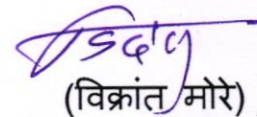 (विक्रांत मोरे)